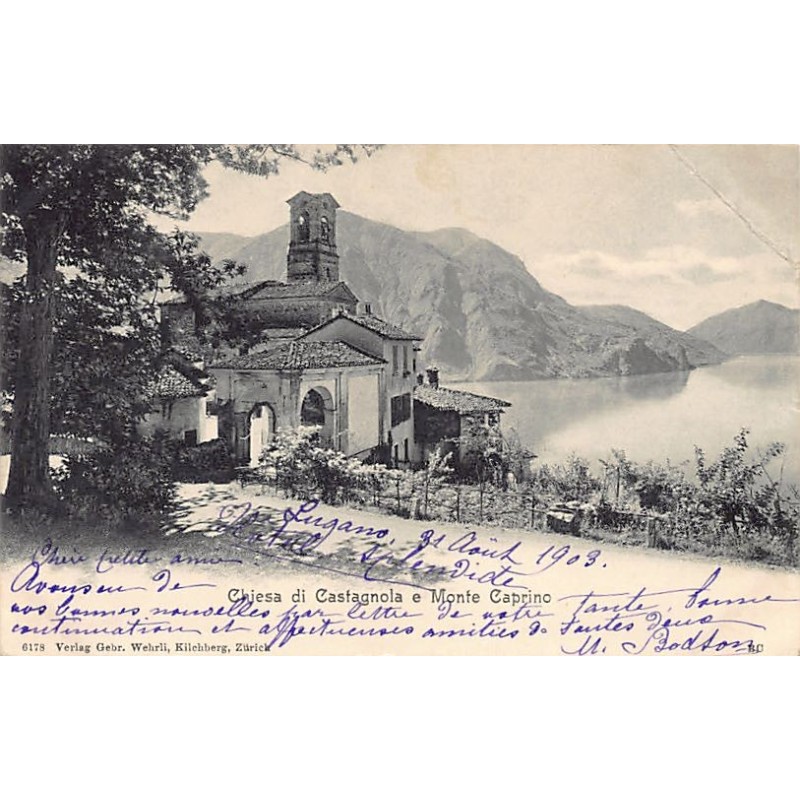 Lugano, 31 Août 1903.
Splendide
Chère petite amie
Chiesa di Castagnola e Monte Caprino
Avons eu de
vos bonnes nouvelles par lettre de votre Tante, bonne
continuation et affectueuses amitiés de toutes deux
M. Bodson
6178 Verlag Gebr. Wehrli, Kilchberg, Zürich